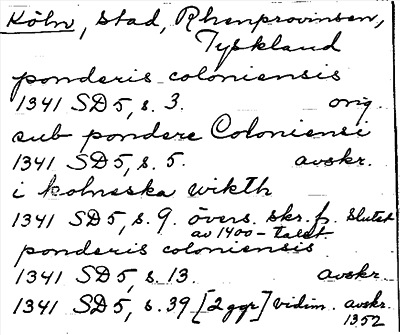 Köln, stad, Rhenprovinsen,
Tyskland
ponderis coloniensis
1341 SD5, s. 3. orig.
sub pondere Coloniensi
1341 SD5, s. 5. avskr.
i kolneska wikth
1341 SD5, s. 9. övers. skr. fr. slutet
av 1400-talet
ponderis coloniensis
1341 SD5, s. 13. avskr.
1341 SD5, s. 39 [2 ggr] vidim. avskr.
1352